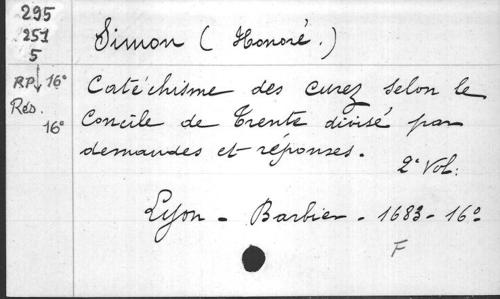 295
251
5
RP ↓ 16°
Rés.
16°
Simon ( Honoré.)
Catéchisme des curez selon le
Concile de Trente divisé par
demandes et réponses.
2e Vol:
Lyon - Barbier - 1683 - 16°
F